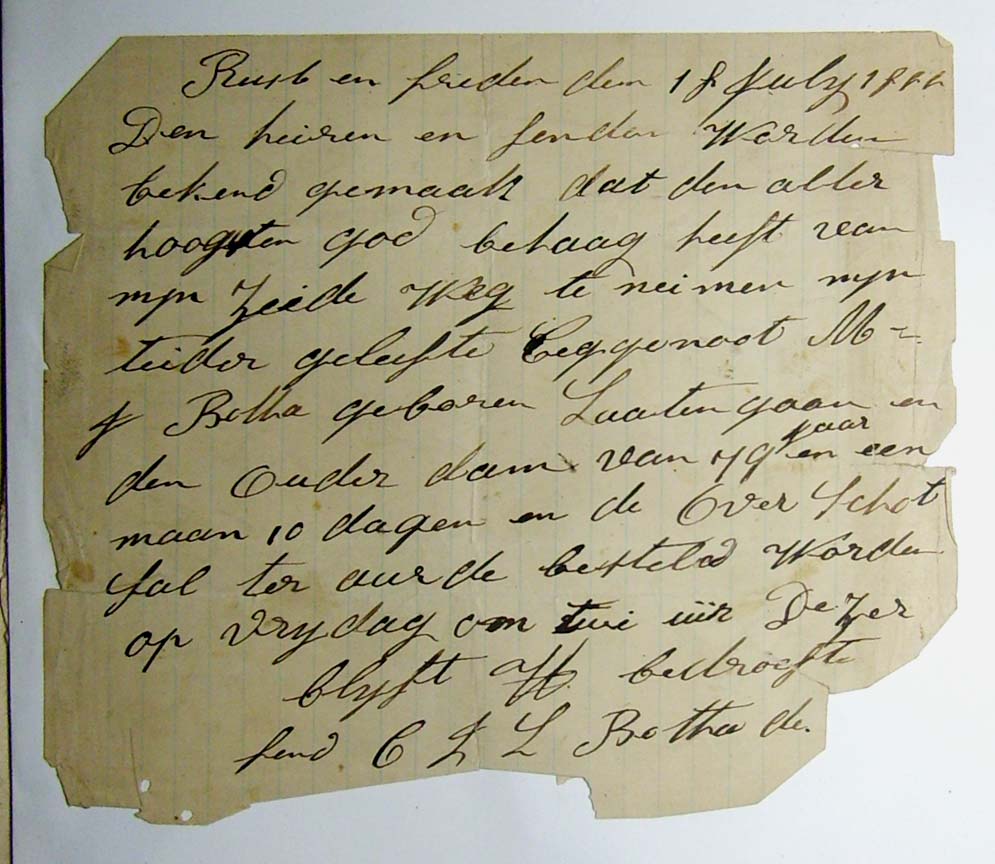 Rust en freden den 18 July 18
Den heiren en fenden Worden
bekend gemaak dat den aller
hoogsten god behaag heeft van
myn Zeide Weg te neimen myn
teider geleifste Eeggenoot M=
J Botha geboren Laatengaan en
den Ouder dam van 79 jaar en een
maan 10 dagen en de Over Schot
sal ter aurde besteld Worden
op Vrydag om twi uir Dezer
blyft UE bedroefte
fend C L Botha de.